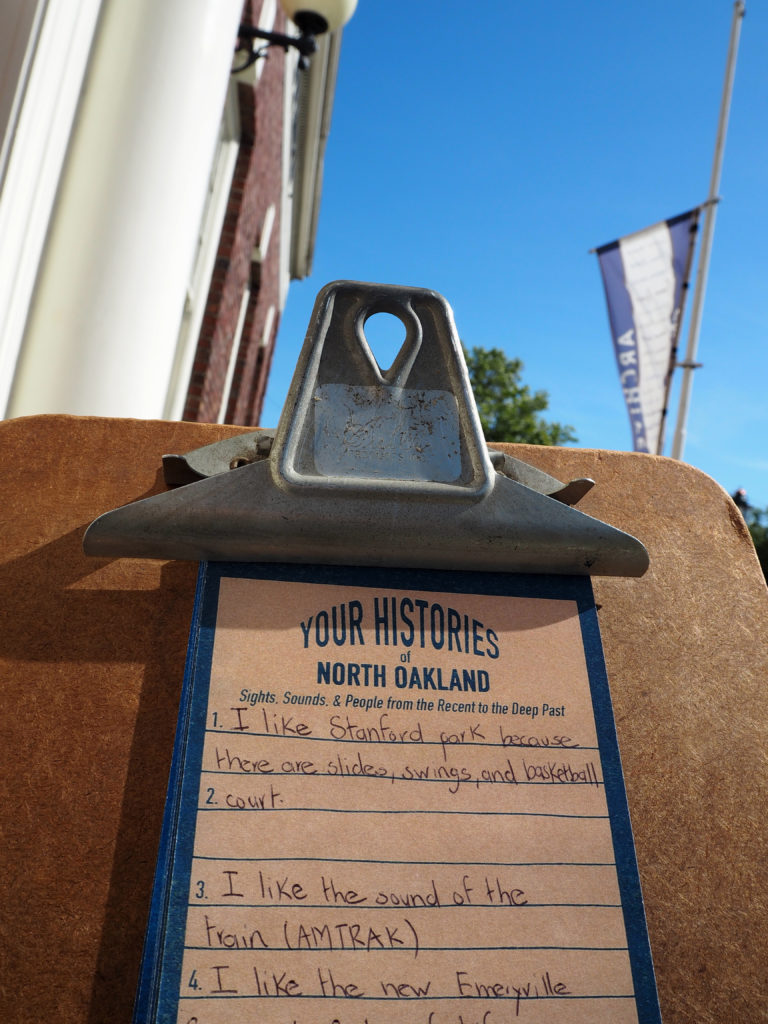 YOUR HISTORIES
of
NORTH OAKLAND
Sights, Sounds, & People from the Recent to the Deep Past
1. I like Stanford park because
there are slides, swings, and basketball
2. court.
3. I like the sound of the
train (AMTRAK)
4. I like the new Emeryville